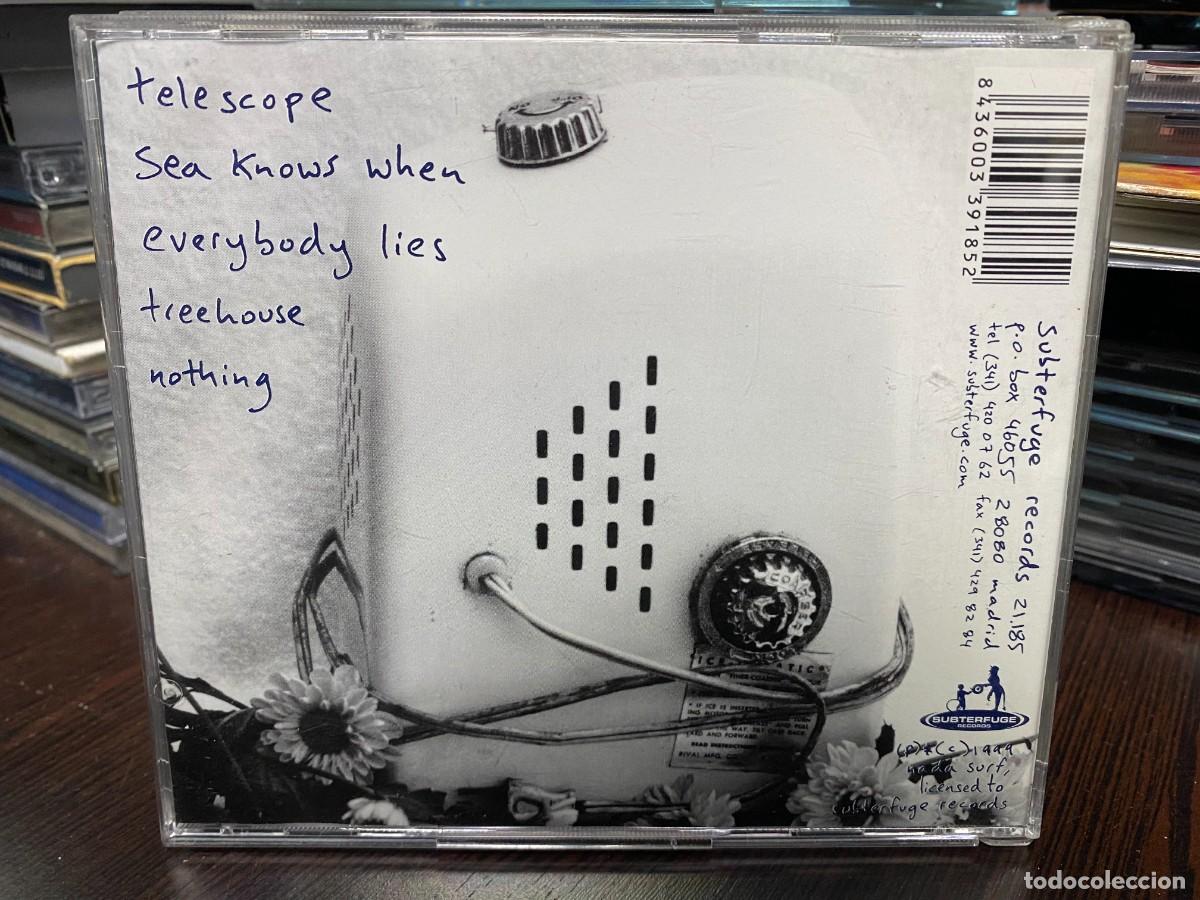 telescope
Sea Knows when
everybody lies
treehouse
nothing
8 436003 391852
Subterfuge records 21.185
p.o. box 46055 28080 madrid
tel (341) 420 07 62 fax (341) 429 82 84
www.subterfuge.com
SUBTERFUGE
RECORDS
(p)&(c)1999
nada surf,
licensed to
subterfuge records
* IF ICE IS
READ INSTRUCTIONS
RIVAL MFG. CO.
todocoleccion